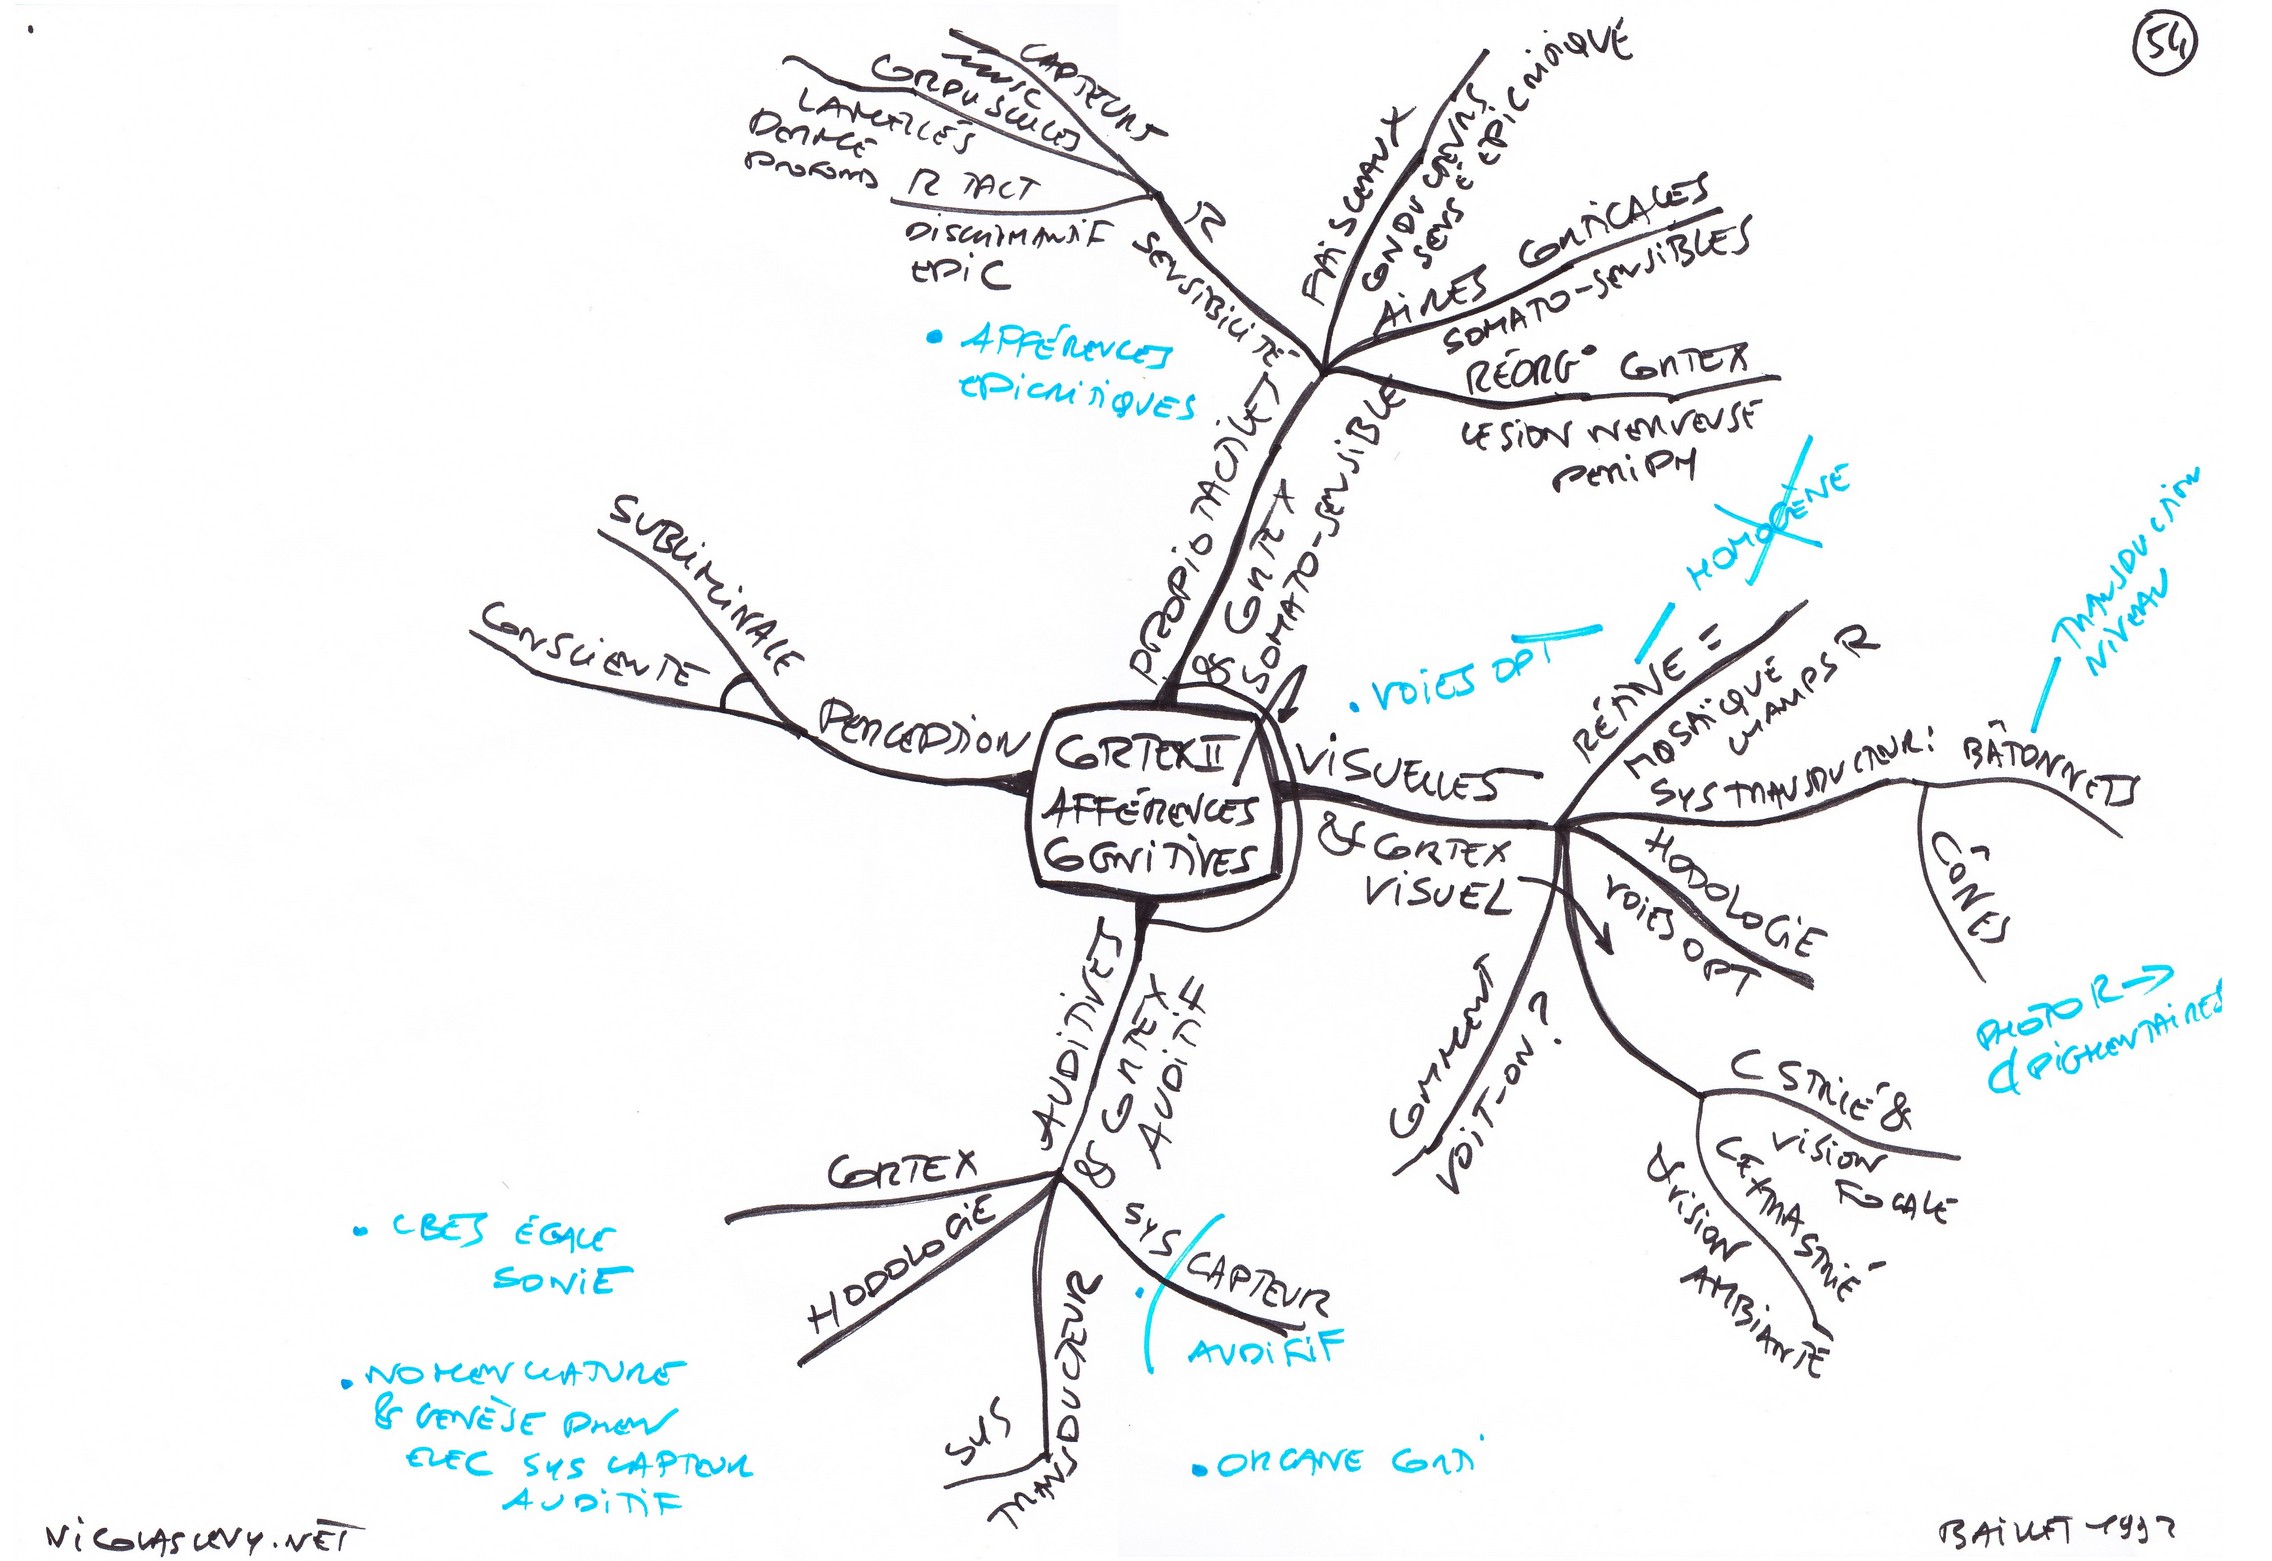 54
CAPTEURS
MUSC
CORPUSCULES
LAMELLÉS
DERME
PROFOND
R TACT
DISCRIMANTIF
EPIC
R
SENSIBILITÉ
FAISCEAUX
CONDUCTEURS
SENSÉ EPICRITIQUE
AIRES CORTICALES
SOMATO-SENSIBLES
RÉORG° CORTEX
LESION NERVEUSE
PERIPH
• AFFÉRENCES
EPICRITIQUES
PROPIO TACTILES
& CORTEX
SOMATO-SENSIBLE
SUBLIMINALE
CONSCIENTE
PERCEPTION
CORTEX II
AFFÉRENCES
COGNITIVES
VISUELLES
& CORTEX
VISUEL
• VOIES OPT
HOMOGÈNE
RÉTINE =
MOSAÏQUE
CHAMPS R
TRANSDUCTION
NIVEAU
SYS TRANSDUCTEUR : BÂTONNETS
CÔNES
HODOLOGIE
VOIES OPT
PHOTO R →
PIGMENTAIRES
C STRIÉ &
VISION
FOCALE
C EXTRASTRIÉ
& VISION
AMBIANTE
COMMENT
VOIT-ON ?
AUDITIVES
& CORTEX
AUDITIF
CORTEX
HODOLOGIE
SYS
TRANSDUCTEUR
SYS CAPTEUR
AUDITIF
• CBES ÉGALE
SONIE
• NOMENCLATURE
& GENÈSE PHEN
ELEC SYS CAPTEUR
AUDITIF
• ORGANE CORTI
NICOLASLEVY.NET
BAILLET-1992